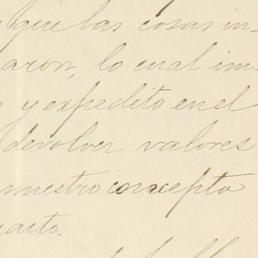 que las cosas in-
aron, lo cual im
y expedito en el
devolver valores
nuestro concepto